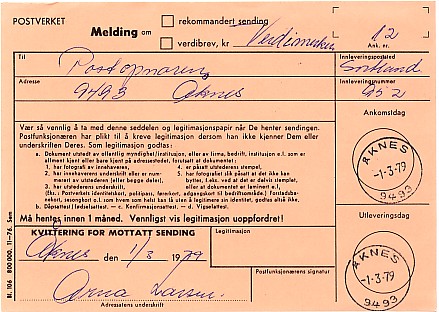 POSTVERKET
Melding om
rekommandert sending
verdibrev, kr
12
Ank. nr.
Innleveringspoststed
Sortland
Til
Postopnaren,
Innleveringsnummer
952
Adresse
9493 Åknes
Ankomstdag
Vær så vennlig å ta med denne seddelen og legitimasjonspapir når De henter sendingen.
Postfunksjonæren har plikt til å kreve legitimasjon dersom han ikke kjenner Dem eller
underskriften Deres. Som legitimasjon godtas:
a. Dokument utstedt av offentlig myndighet/institusjon, eller av firma, bedrift, institusjon e.l. som er
allment kjent eller bare kjent på adressestedet, forutsatt at dokumentet:
1. har fotografi av innehaveren,
2. har innehaverens underskrift eller er nummerert av utstederen (eller begge deler),
3. har utstederens underskrift,
4. er påført utstederens stempel.
5. har fotografiet slik påsatt at det ikke kan
byttes, f.eks. ved at det er delvis stemplet,
eller at dokumentet er laminert e.l.,
(f.eks. Postverkets identitetskort, politipass, førerkort, adgangskort til bedriftsområde.)
b. Dåpsattest/fødselsattest. — c. Konfirmasjonsattest. — d. Vigselattest.
ÅKNES
-1-3-79
9493
Må hentes innen 1 måned. Vennligst vis legitimasjon uoppfordret!
Utleveringsdag
KVITTERING FOR MOTTATT SENDING
Legitimasjon
Åknes den 1/3 1979
ÅKNES
-1-3-79
9493
Postfunksjonærens signatur
Arna Larsen
Adressatens underskrift
Bl. 106 800 000. 11-76. Sem